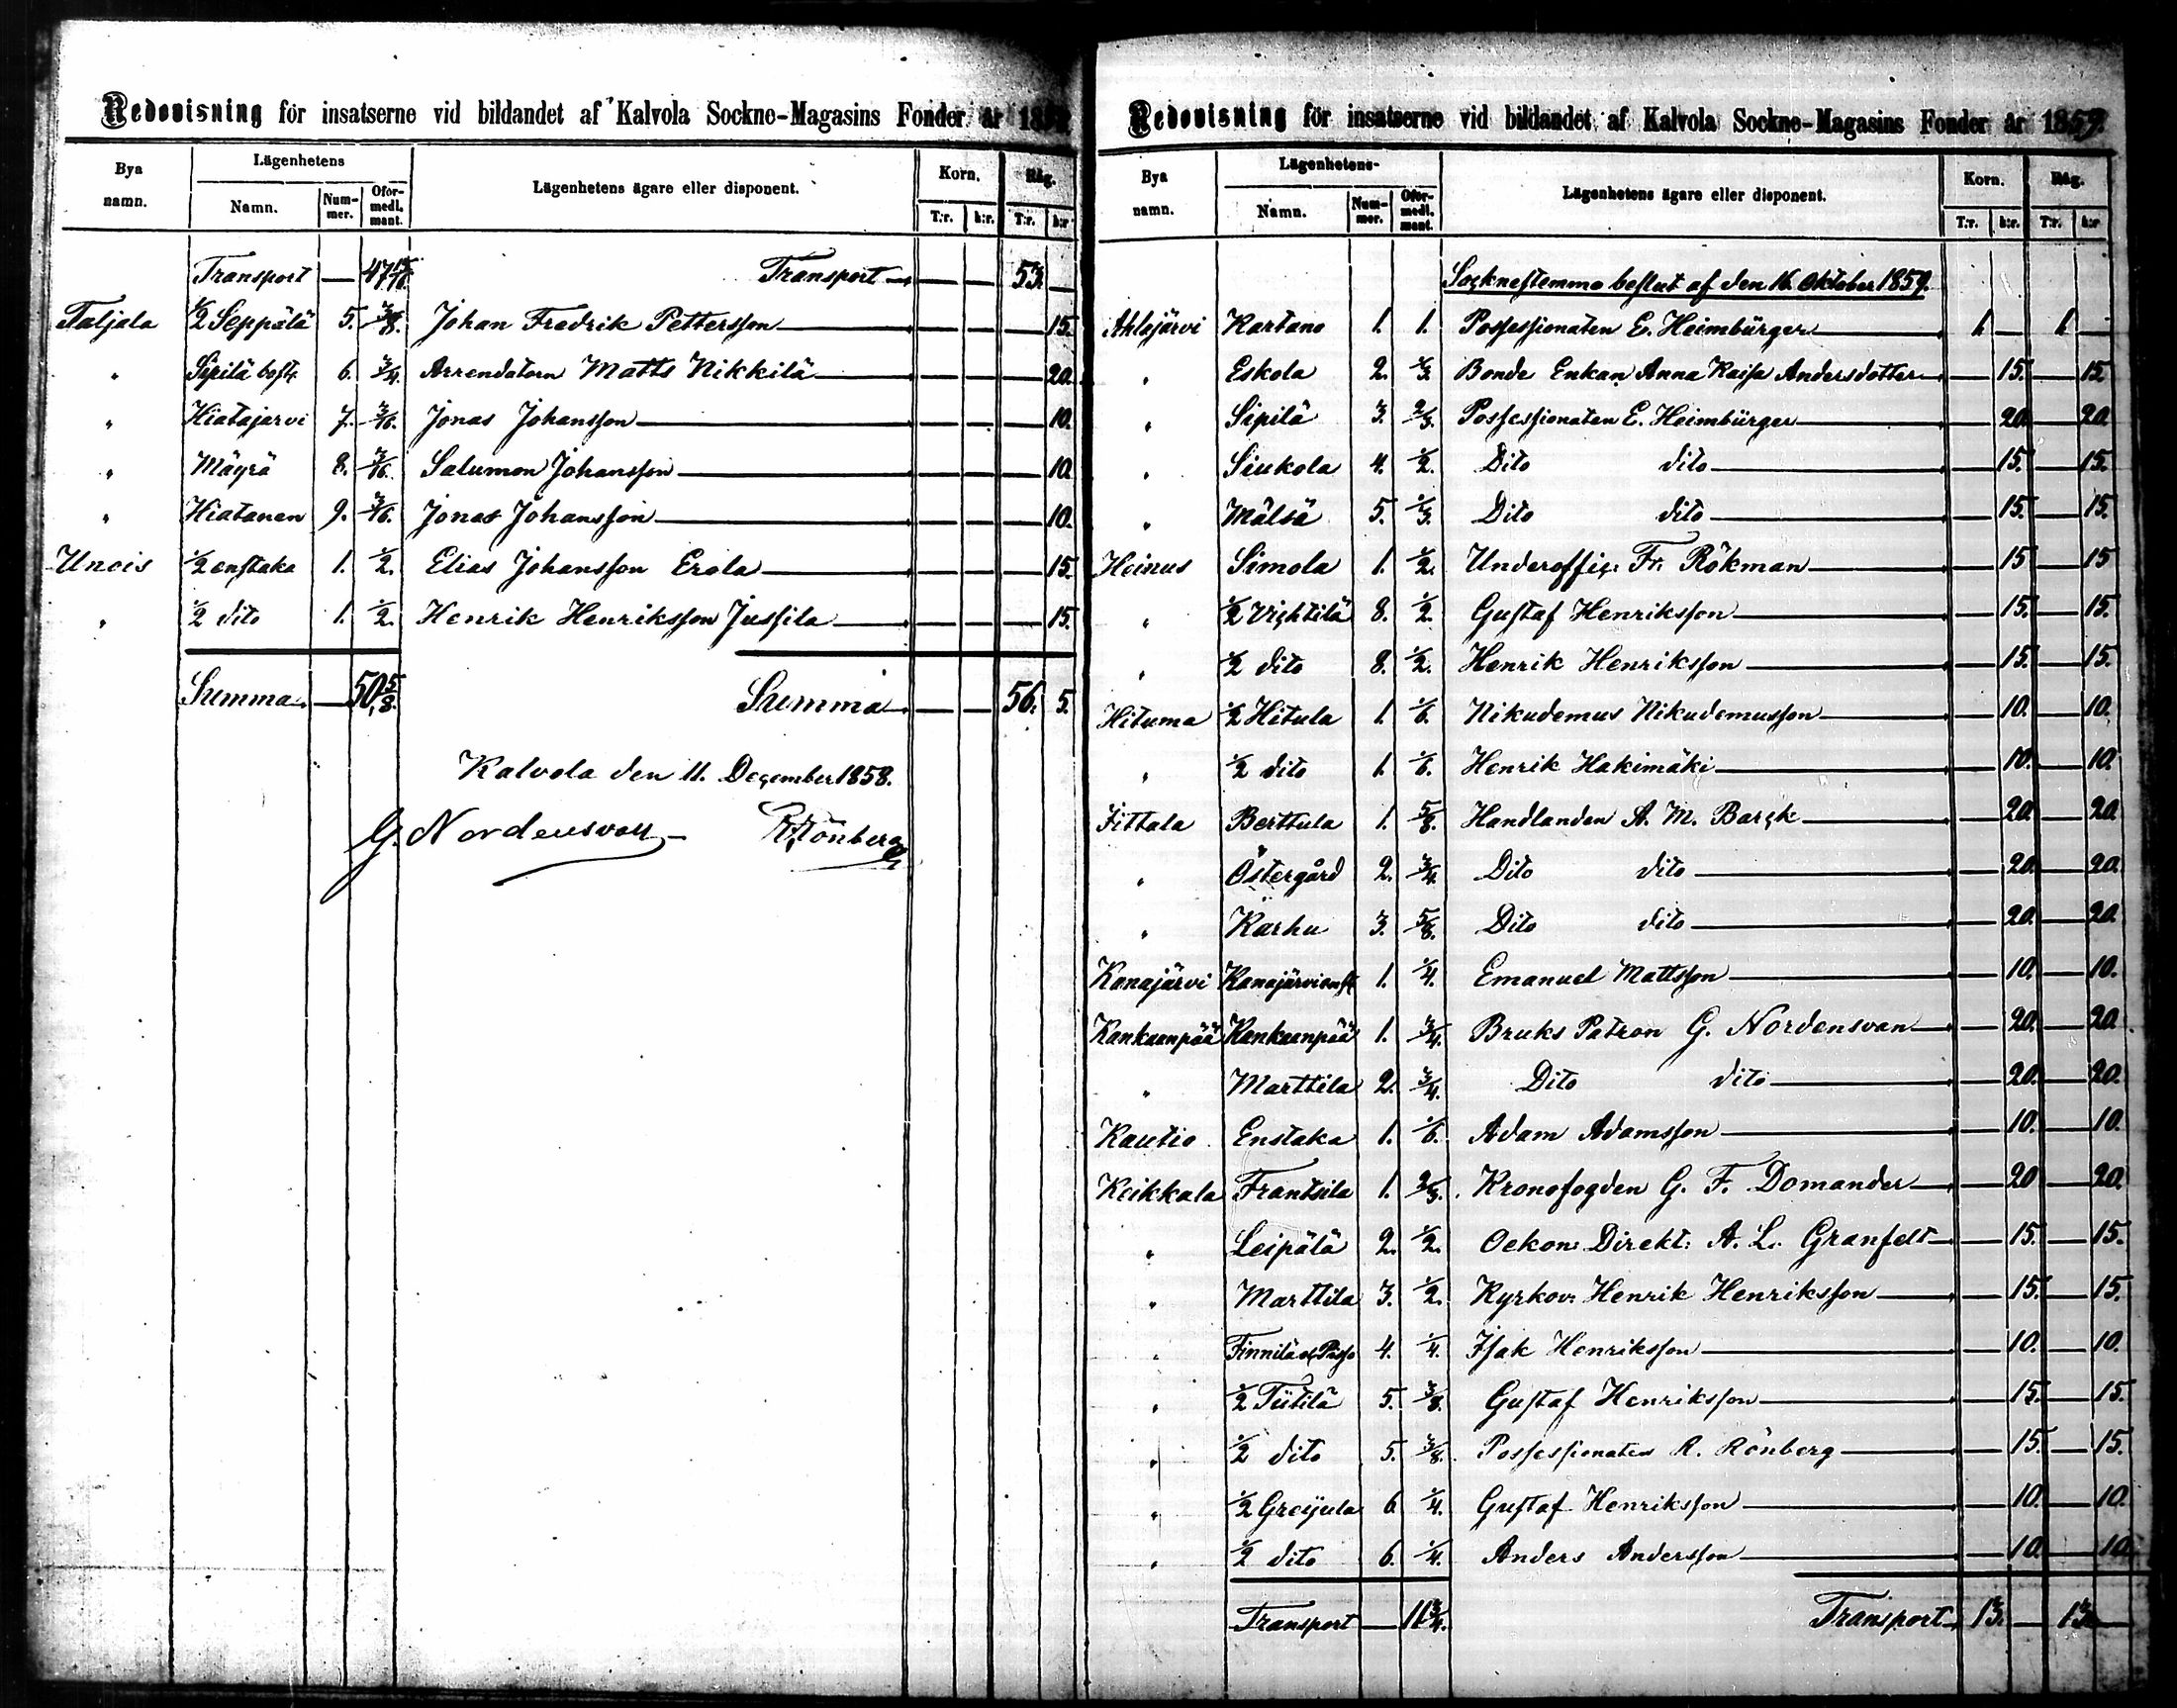 Redovisning för insatserne vid bildandet af Kalvola Sockne-Magasins Fonder år 185
Bya namn. Lägenhetens Namn. Num-mer. Oför-medl. mant. Lägenhetens ägare eller disponent. Korn. T:r. k:r. Råg. T:r. k:r
Transport — 47 15/16. Transport — — — 53. —
Taljala 1/2 Seppälä 5. 3/8. Johan Fredrik Pettersson — — — 15.
" Sipilä bost. 6. 3/4. Arrendatorn Matts Nikkilä — — — 20.
" Hiatajarvi 7. 3/16. Jonas Johansson — — — 10.
" Mäyrä 8. 3/16. Salumon Johansson — — — 10.
" Hiatanen 9. 3/16. Jonas Johansson — — — 10.
Unois 1/2 enstaka 1. 1/2. Elias Johansson Erola — — — 15.
" 1/2 dito 1. 1/2. Henrik Henriksson Jussila — — — 15.
Summa — 50 5/8. Summa — — 56. 5.
Kalvola den 11. December 1858.
G. Nordensvan — R. Rönberg
Redovisning för insatserne vid bildandet af Kalvola Sockne-Magasins Fonder år 1859.
Bya namn. Lägenhetens- Namn. Num-mer. Oför-medl. mant. Lägenhetens ägare eller disponent. Korn. T:r. k:r. Råg. T:r. k:r
Socknestemmo beslut af den 16. Oktober 1859.
Ahlajärvi Kartano 1. 1. Possessionaten E. Heimbürger 1. — 1. —
" Eskola 2. 1/3. Bonde Enkan Anna Kaisa Andersdotter — 15. — 15.
" Sipilä 3. 2/3. Possessionaten E. Heimbürger — 20. — 20.
" Siukola 4. 1/2. Dito dito — 15. — 15.
" Mälsä 5. 1/3. Dito dito — 15. — 15.
Heinus Simola 1. 1/2. Underoffic: Fr. Rökman — 15 — 15
" 1/2 Vichtilä 8. 1/2. Gustaf Henriksson — 15. — 15.
" 1/2 dito 8. 1/2. Henrik Henriksson — 15. — 15.
Hituma 1/2 Hitula 1. 1/6. Nikudemus Nikudemusson — 10. — 10.
" 1/2 dito 1. 1/6. Henrik Hakimäki — 10. — 10.
Jittala Berttula 1. 5/8. Handlanden A. M. Barck — 20. — 20.
" Östergård 2. 3/4. Dito dito — 20. — 20.
" Karhu 3. 5/8. Dito dito — 20. — 20
Kanajärvi Kanajärvi enst 1. 1/4. Emanuel Mattsson — 10. — 10.
Kankaanpää Kankaanpää 1. 3/4. Bruks Patron G. Nordensvan — 20. — 20.
" Marttila 2. 3/4. Dito dito — 20. — 20.
Kautio Enstaka 1. 1/6. Adam Adamsson — 10. — 10.
Keikkala Frantsila 1. 2/3. Kronofogden G. F. Domander — 20 — 20.
" Leipälä 2. 1/2. Oekon: Direkt: A. L. Granfelt — 15. — 15.
" Marttila 3. 1/2. Kyrkov: Henrik Henriksson — 15. — 15.
" Finnilä 4. 1/4. Isak Henriksson — 10. — 10.
" 1/2 Tütilä 5. 3/8. Gustaf Henriksson — 15. — 15.
" 1/2 dito 5. 3/8. Possessionaten R. Rönberg — 15. — 15.
" 1/2 Greijula 6. 1/4. Gustaf Henriksson — 10. — 10.
" 1/2 dito 6. 1/4. Anders Andersson — 10. — 10.
Transport — 11 3/4. Transport 13. — 13. —